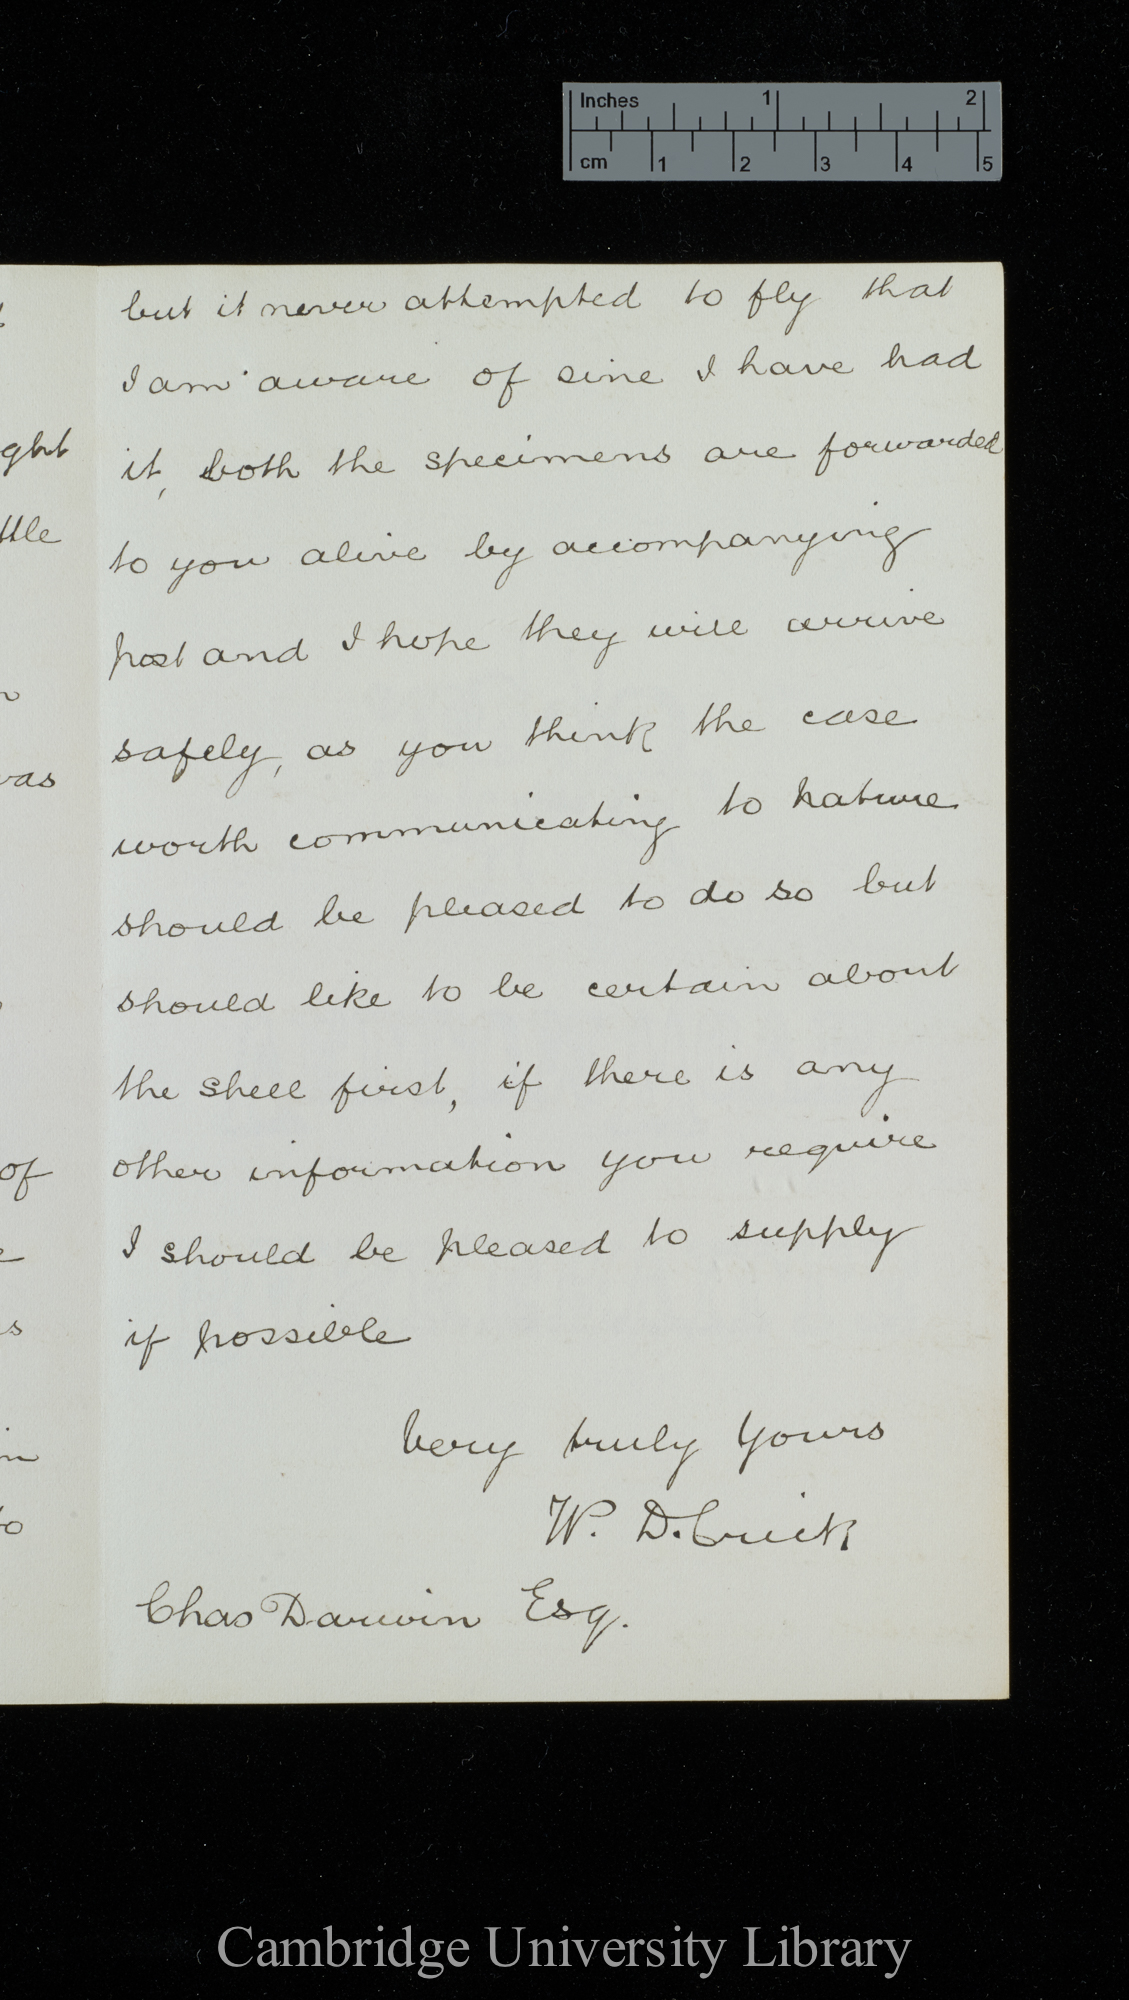 Inches 1 2
cm 1 2 3 4 5
but it never attempted to fly that
I am aware of sine I have had
it, both the specimens are forwarded
to you alive by accompanying
post and I hope they will arrive
safely, as you think the case
worth communicating to Nature
should be pleased to do so but
should like to be certain about
the shell first, if there is any
other information you require
I should be pleased to supply
if possible
Very truly Yours
W. D. Crick
Chas Darwin Esq.
ght
ttle
was
of
in
to
Cambridge University Library